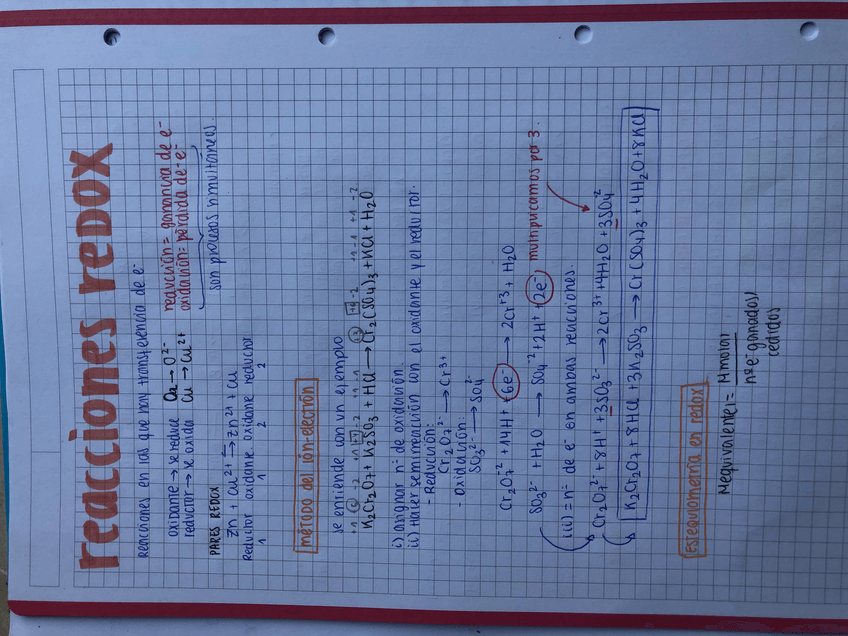 reacciones redox
Reacciones en las que hay transferencia de e⁻
oxidante → se reduce Cu → O²⁻ reducción = ganancia de e⁻
reductor → se oxida Cu → Cu²⁺ oxidación = pérdida de e⁻
son procesos simultáneos.
PARES REDOX
Zn + Cu²⁺ ⇆ Zn²⁺ + Cu
Reductor oxidante oxidante reductor
1 1 2 2
método del ión-electrón
se entiende con un ejemplo
+1 6 -2 +1 4 -2 +1 -1 3 +6 -2 +1 -1 +1 -2
K₂Cr₂O₇ + K₂SO₃ + HCl → Cr₂(SO₄)₃ + KCl + H₂O
i) asignar nº de oxidación.
ii) Hacer semirreacción con el oxidante y el reductor.
- Reducción:
Cr₂O₇²⁻ → Cr³⁺
- Oxidación:
SO₃²⁻ → SO₄²⁻
Cr₂O₇⁻² + 14H⁺ + 6e⁻ → 2Cr⁺³ + H₂O
SO₃²⁻ + H₂O → SO₄⁻² + 2H⁺ + 2e⁻ multiplicamos por 3.
iii) = nº de e⁻ en ambas reacciones.
Cr₂O₇²⁻ + 8H⁺ + 3SO₃²⁻ → 2Cr³⁺ + 4H₂O + 3SO₄²
K₂Cr₂O₇ + 8HCl + 3K₂SO₃ → Cr(SO₄)₃ + 4H₂O + 8KCl
Estequiometría en redox
Mequivalente = Mmolar
nº e⁻ ganados/
cedidos